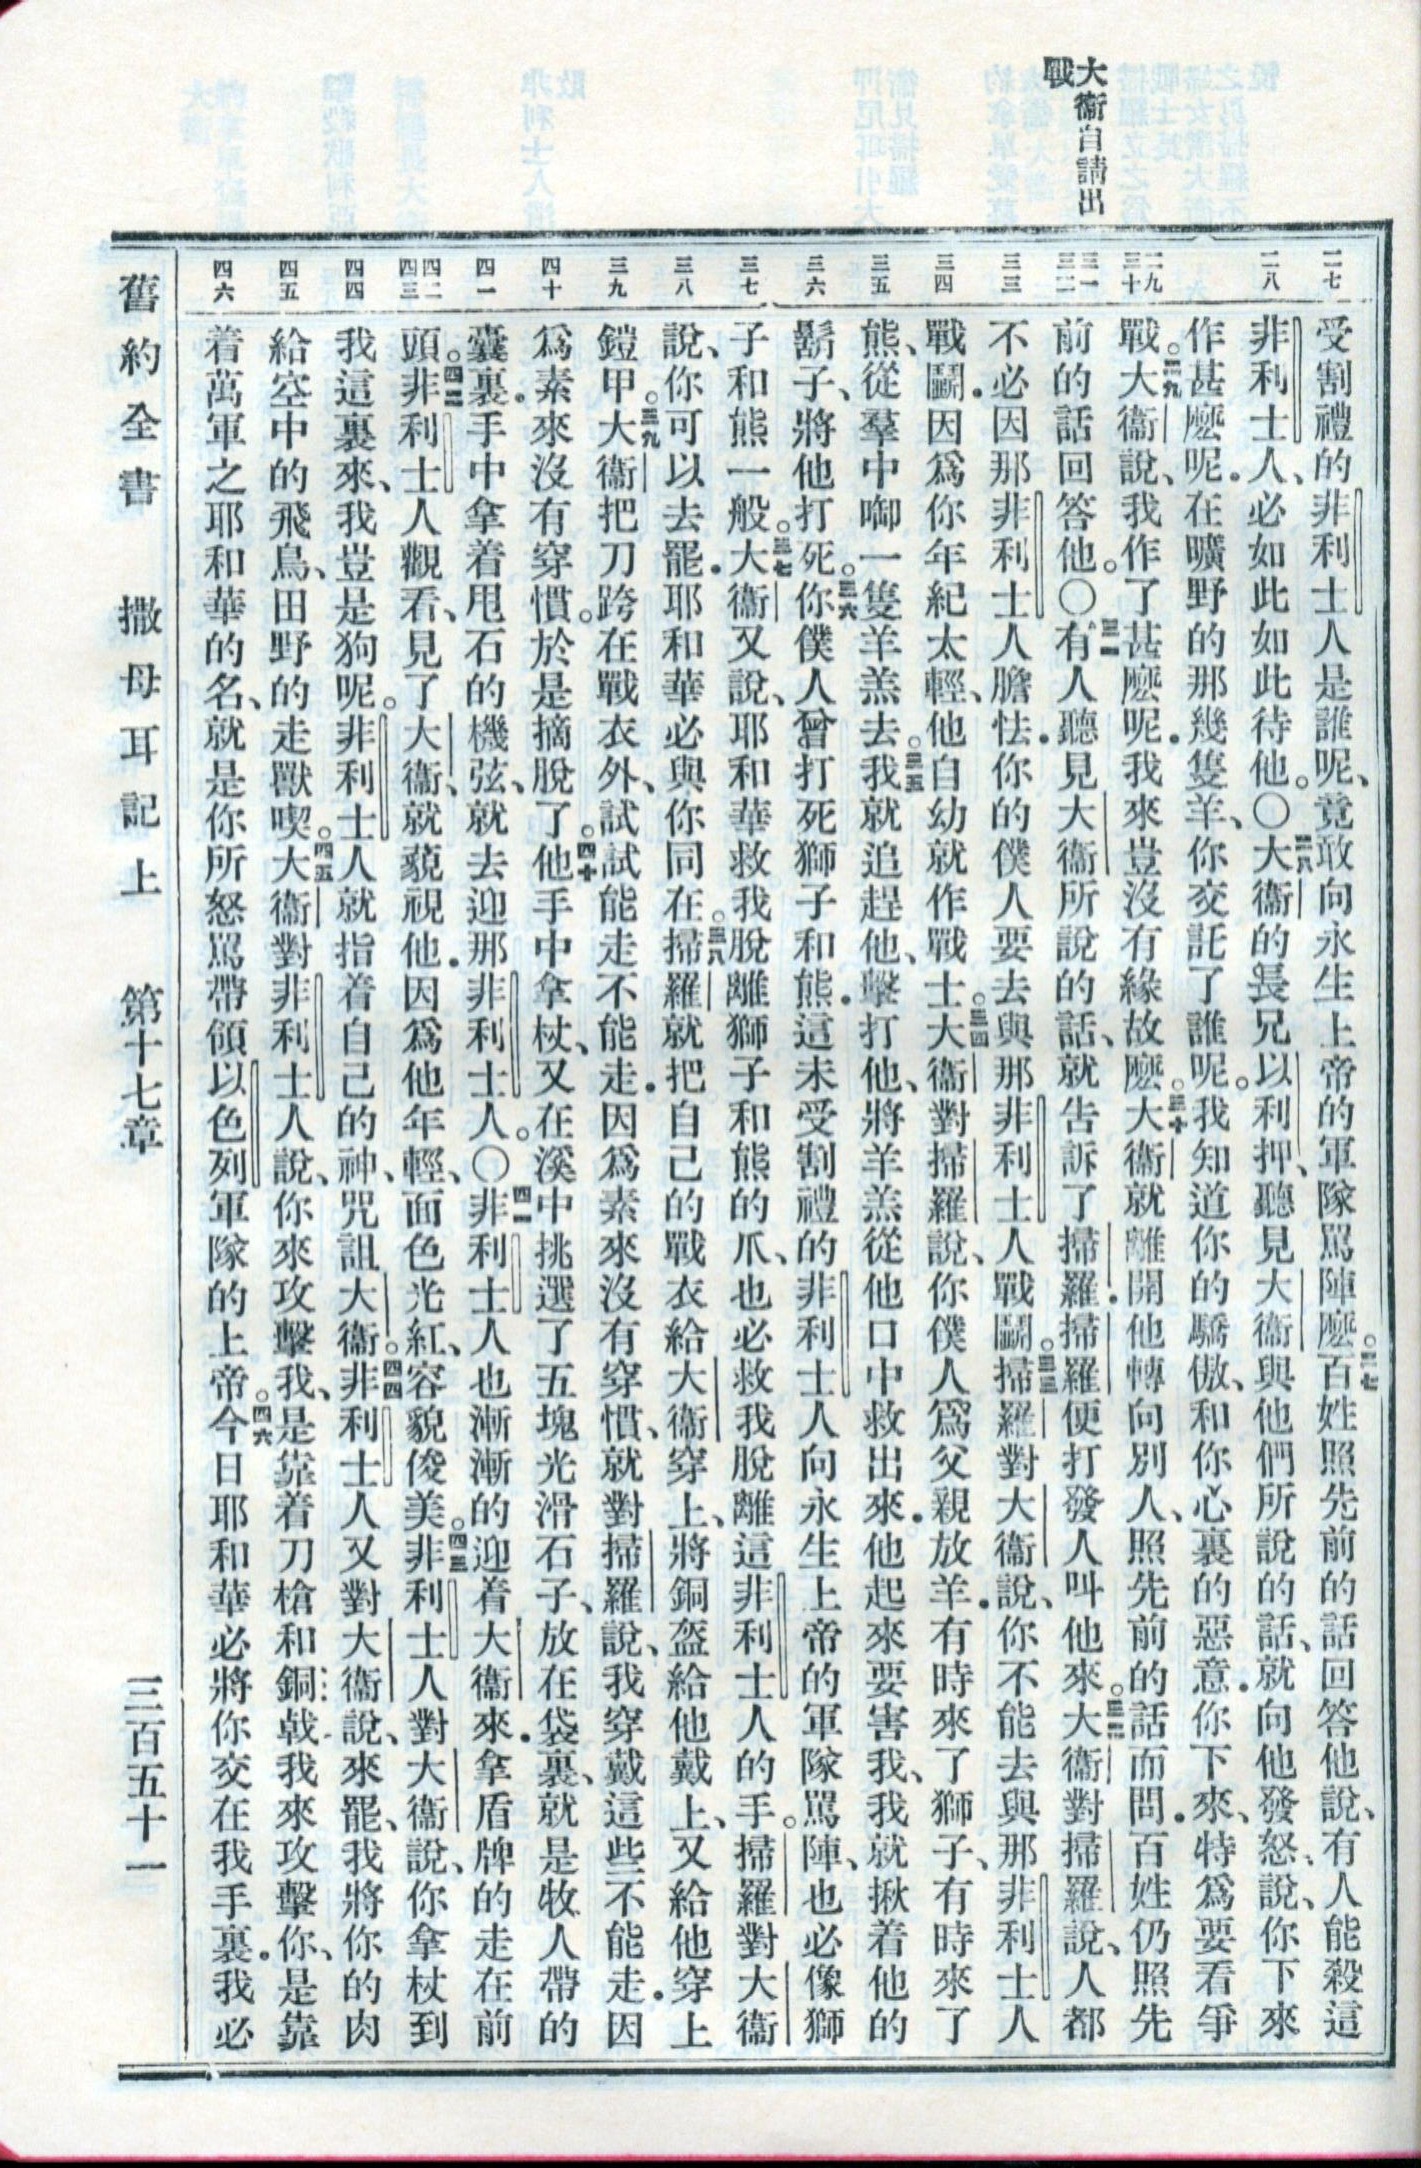 大衞自請出
戰
二七
二八
二九
三十
三一
三二
三三
三四
三五
三六
三七
三八
三九
四十
四一
四二
四三
四四
四五
四六
受割禮的非利士人是誰呢、竟敢向永生上帝的軍隊罵陣麽。二七百姓照先前的話回答他說、有人能殺這
非利士人、必如此如此待他。〇二八大衞的長兄以利押、聽見大衞與他們所說的話、就向他發怒、說、你下來
作甚麽呢．在曠野的那幾隻羊、你交託了誰呢。我知道你的驕傲、和你心裏的惡意．你下來、特爲要看爭
戰。二九大衞說、我作了甚麽呢．我來豈沒有緣故麽。三十大衞就離開他轉向別人、照先前的話而問．百姓仍照先
前的話回答他。〇三一有人聽見大衞所說的話、就吿訴了掃羅．掃羅便打發人叫他來。三二大衞對掃羅說、人都
不必因那非利士人膽怯．你的僕人要去與那非利士人戰鬭。三三掃羅對大衞說、你不能去與那非利士人
戰鬭．因爲你年紀太輕、他自幼就作戰士。三四大衞對掃羅說、你僕人爲父親放羊．有時來了獅子、有時來了
熊、從羣中啣一隻羊羔去。三五我就追趕他、擊打他、將羊羔從他口中救出來．他起來要害我、我就揪着他的
鬍子、將他打死。三六你僕人曾打死獅子和熊．這未受割禮的非利士人向永生上帝的軍隊罵陣、也必像獅
子和熊一般。三七大衞又說、耶和華救我脫離獅子和熊的爪、也必救我脫離這非利士人的手。掃羅對大衞
說、你可以去罷．耶和華必與你同在。三八掃羅就把自己的戰衣給大衞穿上、將銅盔給他戴上、又給他穿上
鎧甲。三九大衞把刀跨在戰衣外、試試能走不能走．因爲素來沒有穿慣、就對掃羅說、我穿戴這些不能走．因
爲素來沒有穿慣。於是摘脫了。四十他手中拿杖、又在溪中挑選了五塊光滑石子、放在袋裏、就是牧人帶的
囊裏．手中拿着甩石的機弦、就去迎那非利士人。〇四一非利士人也漸漸的迎着大衞來．拿盾牌的走在前
頭。四二非利士人觀看、見了大衞、就藐視他．因爲他年輕、面色光紅、容貌俊美。四三非利士人對大衞說、你拿杖到
我這裏來、我豈是狗呢。非利士人就指着自己的神、咒詛大衞。四四非利士人又對大衞說、來罷、我將你的肉
給空中的飛鳥、田野的走獸喫。四五大衞對非利士人說、你來攻擊我、是靠着刀槍和銅戟．我來攻擊你、是靠
着萬軍之耶和華的名、就是你所怒罵帶領以色列軍隊的上帝。四六今日耶和華必將你交在我手裏．我必
舊約全書　撒母耳記上　第十七章　三百五十一